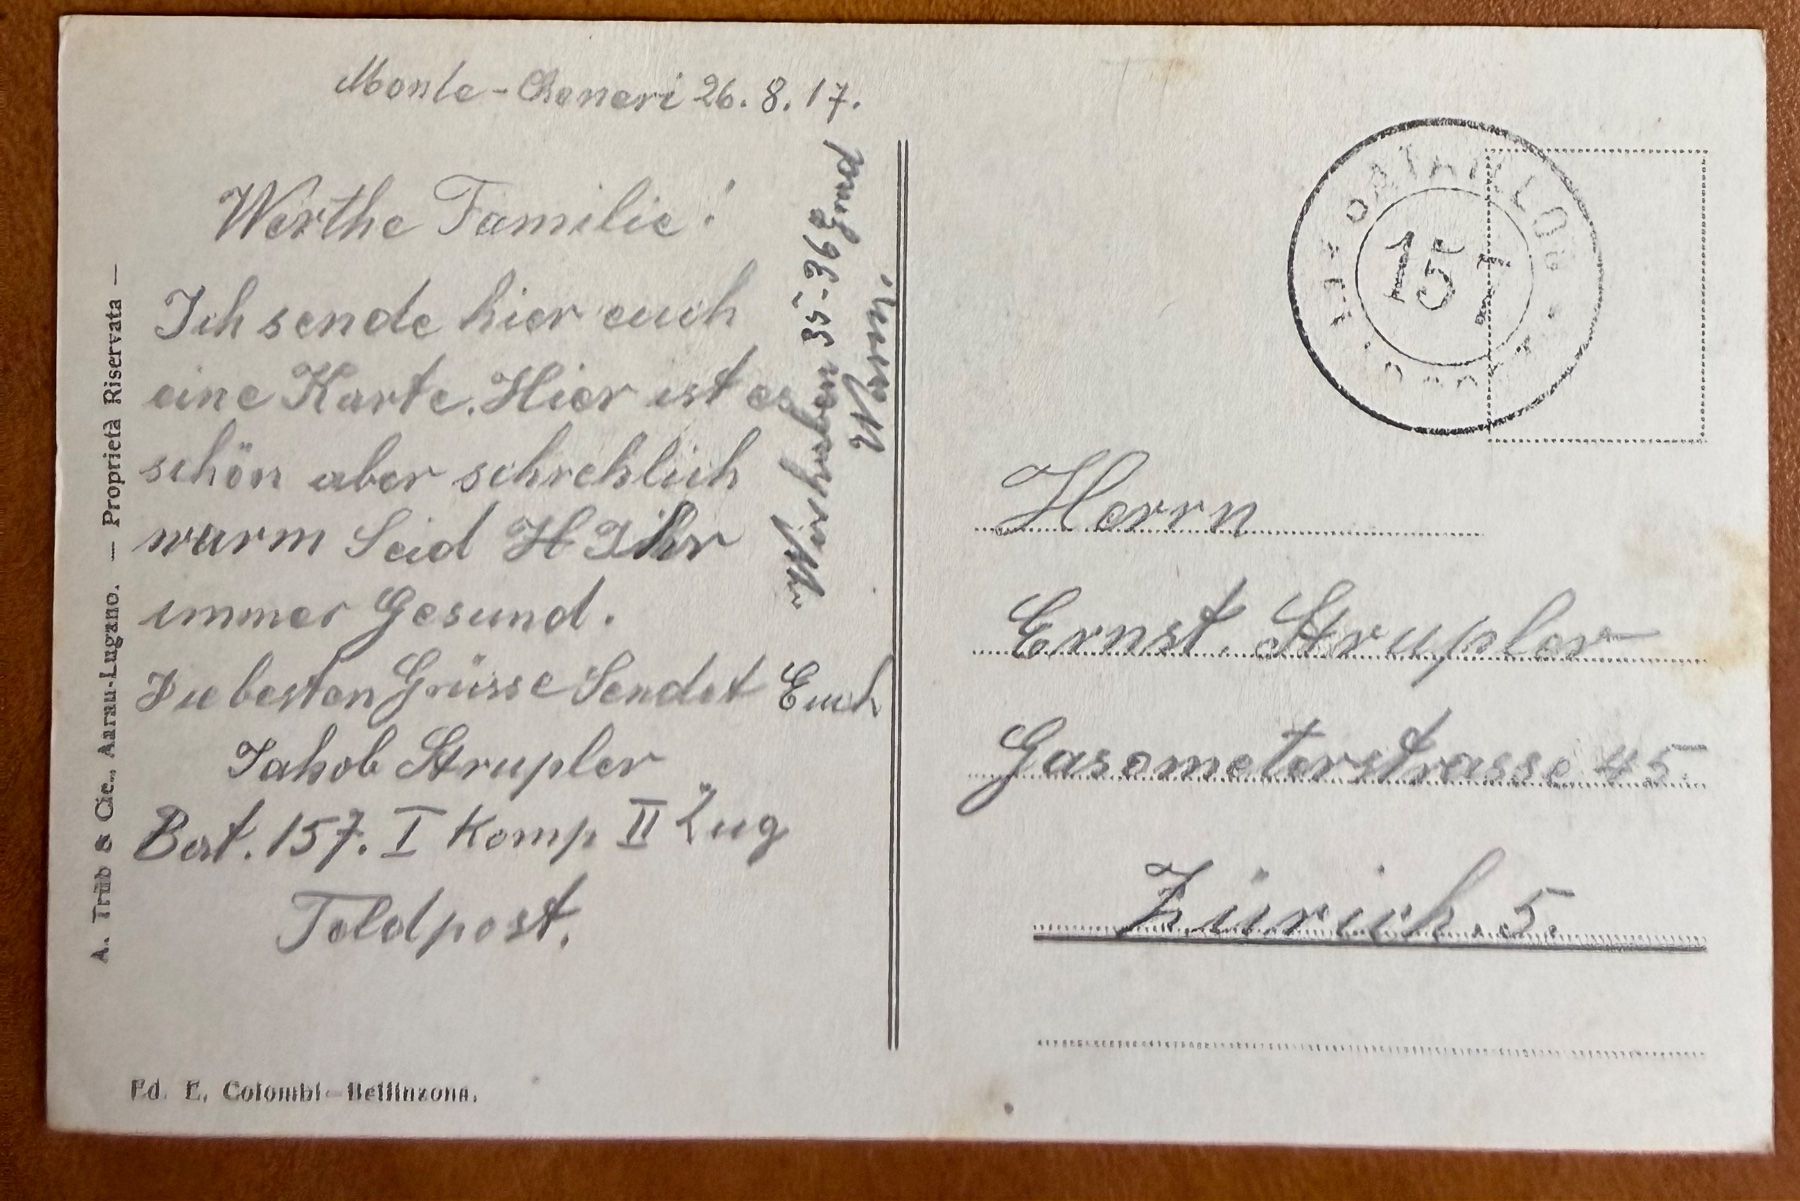 Monte-Ceneri 26. 8. 17.
Werthe Familie!
Ich sende hier euch
eine Karte. Hier ist es
schön aber schrehlich
warm Seid H Ihr
immer Gesund.
Die besten Grüsse Sendet Euch
Jakob Strupler
Bat. 157. I Komp II Zug
Feldpost.
Wir haben 35-36 Grad
Warm.
A. Trüb & Cie., Aarau-Lugano. — Proprietà Riservata —
Ed. E. Colombi-Bellinzona.
BATAILLON
157
Herrn
Ernst. Strupler
Gasometerstrasse 45.
Zürich. 5.